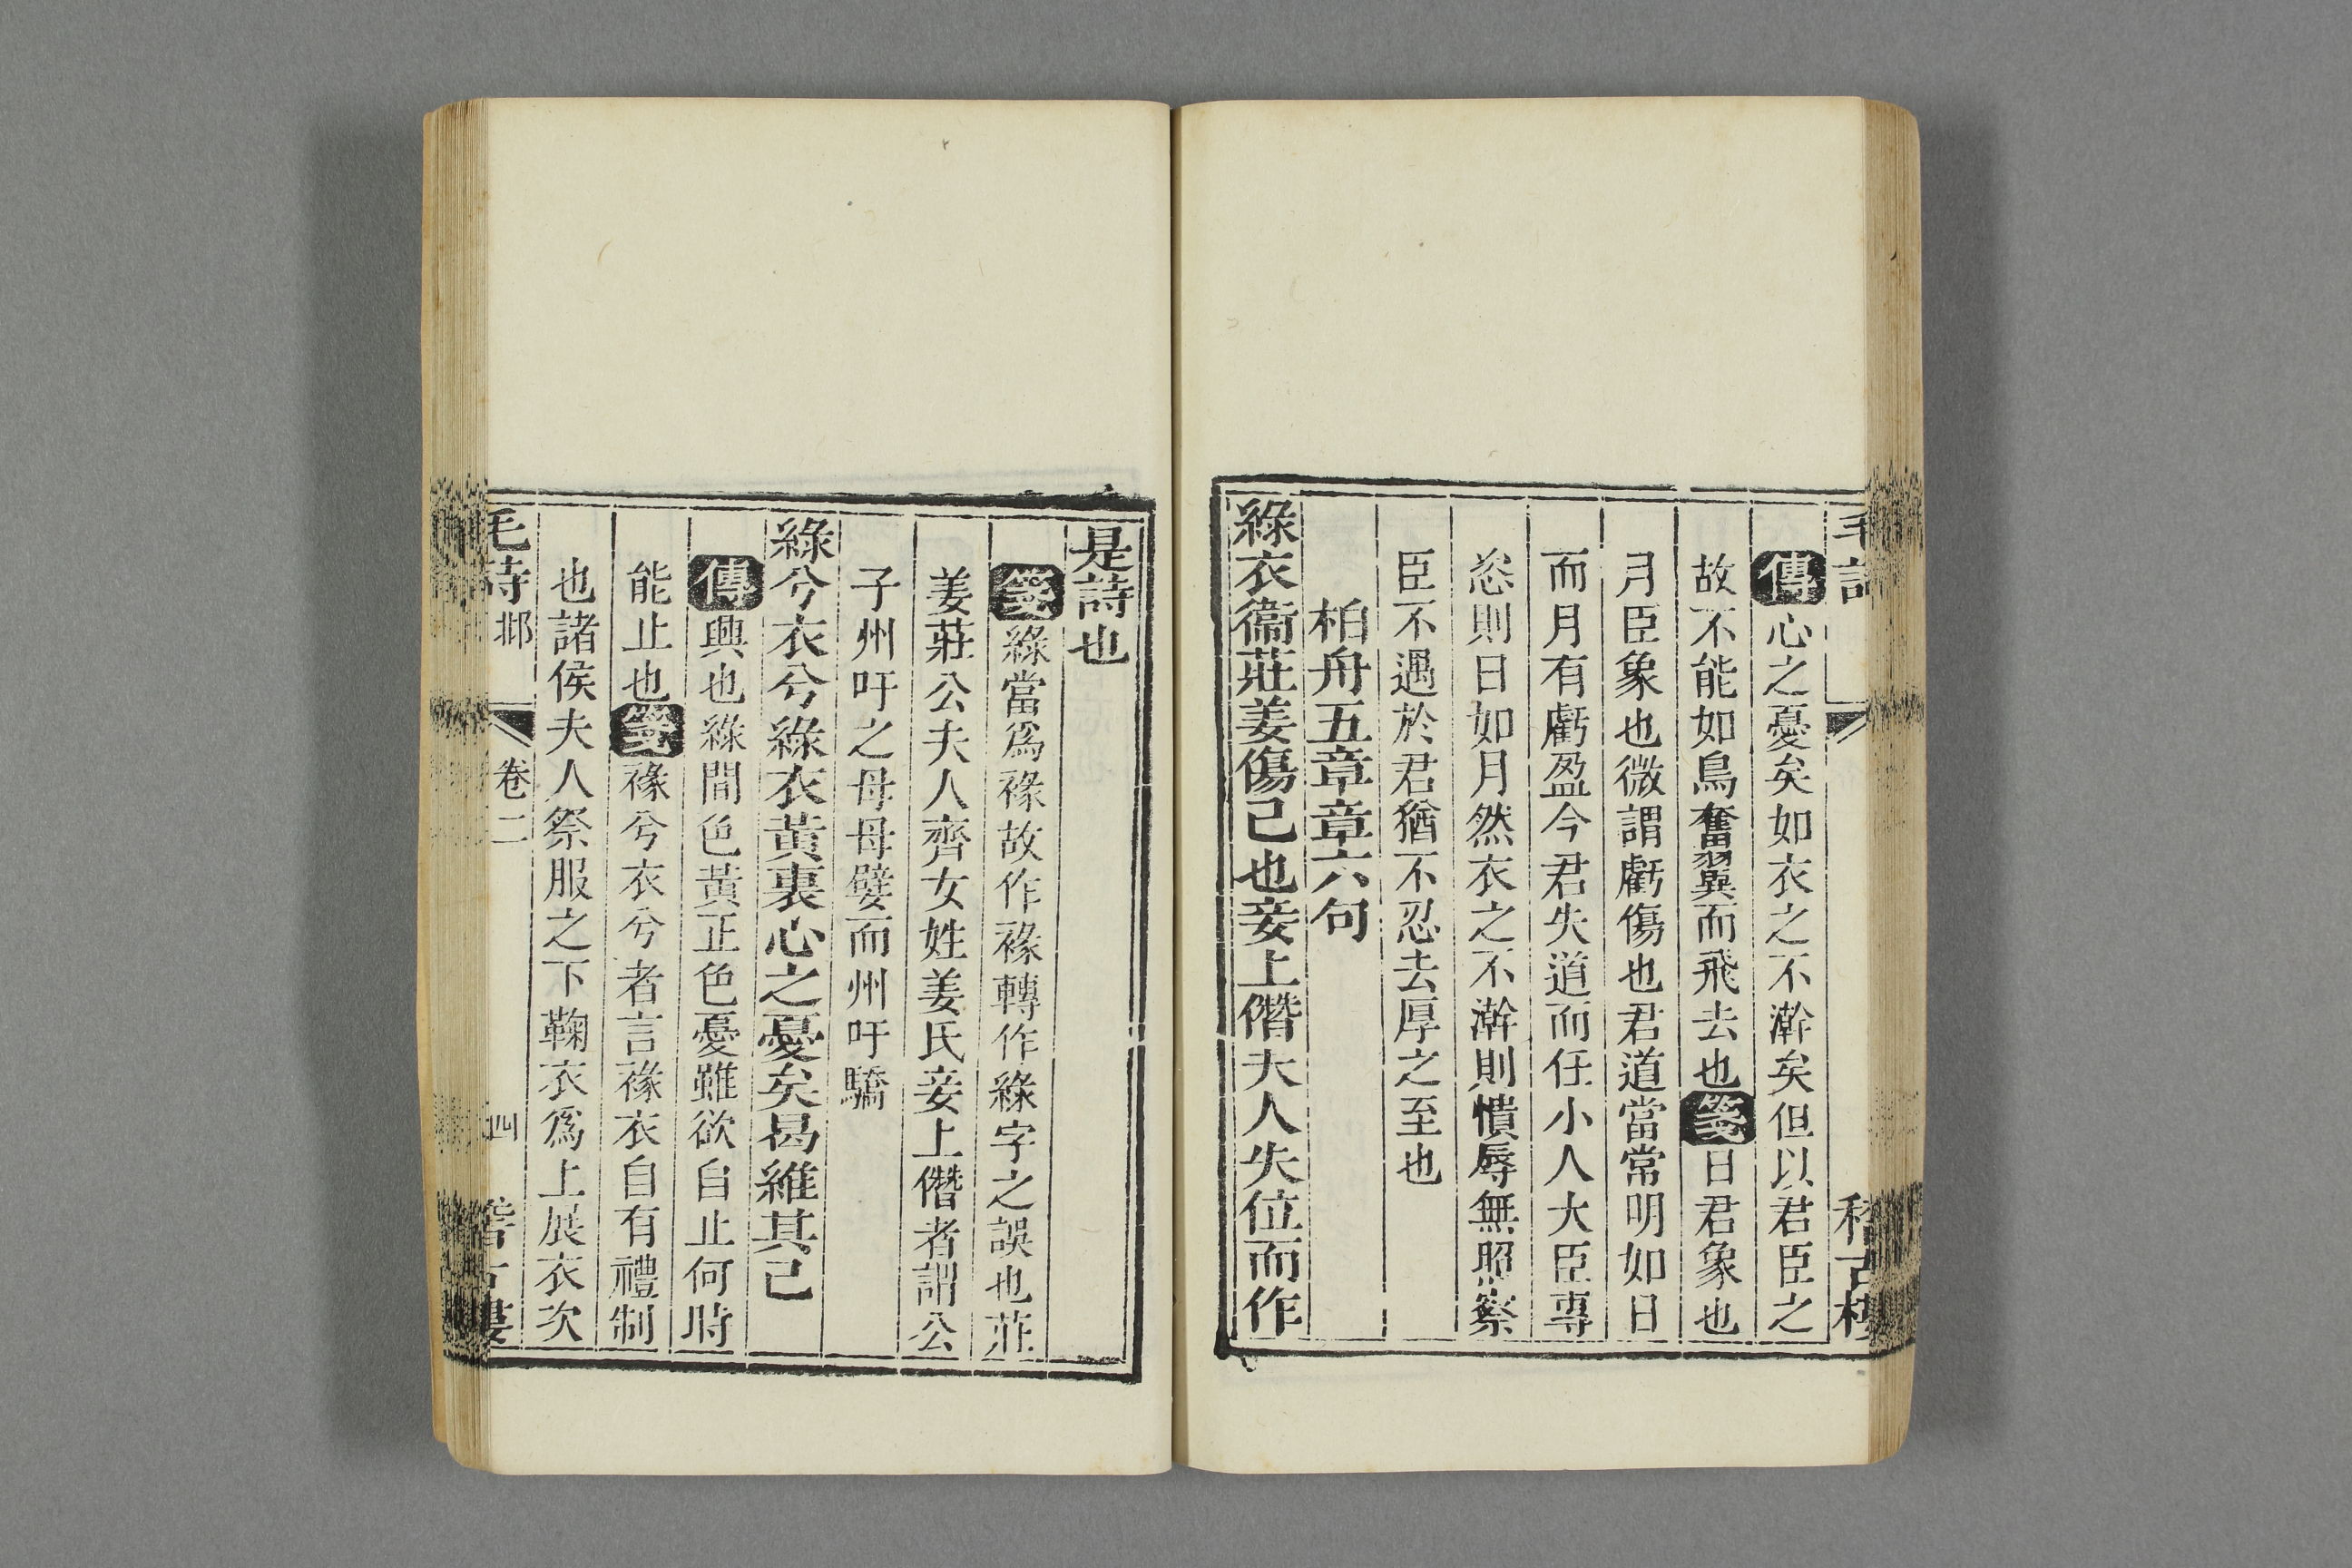 毛詩
稽古樓
傳心之憂矣如衣之不澣矣但以君臣之
故不能如鳥奮翼而飛去也箋日君象也
月臣象也微謂虧傷也君道當常明如日
而月有虧盈今君失道而任小人大臣專
恣則日如月然衣之不澣則憒辱無照察
臣不遇於君猶不忍去厚之至也
柏舟五章章六句
綠衣衞莊姜傷己也妾上僭夫人失位而作
是詩也
箋綠當爲褖故作褖轉作綠字之誤也莊
姜莊公夫人齊女姓姜氏妾上僭者謂公
子州吁之母母嬖而州吁驕
綠兮衣兮綠衣黃裏心之憂矣曷維其己
傳興也綠間色黃正色憂雖欲自止何時
能止也箋褖兮衣兮者言褖衣自有禮制
也諸侯夫人祭服之下鞠衣爲上展衣次
毛詩 邶 卷二 四 稽古樓